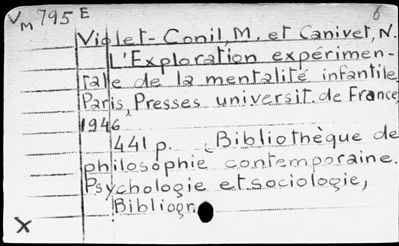 VM 795 E 6
Violet-Conil, M. et Canivet, N.
L'Exploration expérimen-
tale de la mentalité infantile,
Paris, Presses universit. de France,
1946
441 p. (Bibliothèque de
philosophie contemporaine.
Psychologie et sociologie,
Bibliogr.
X